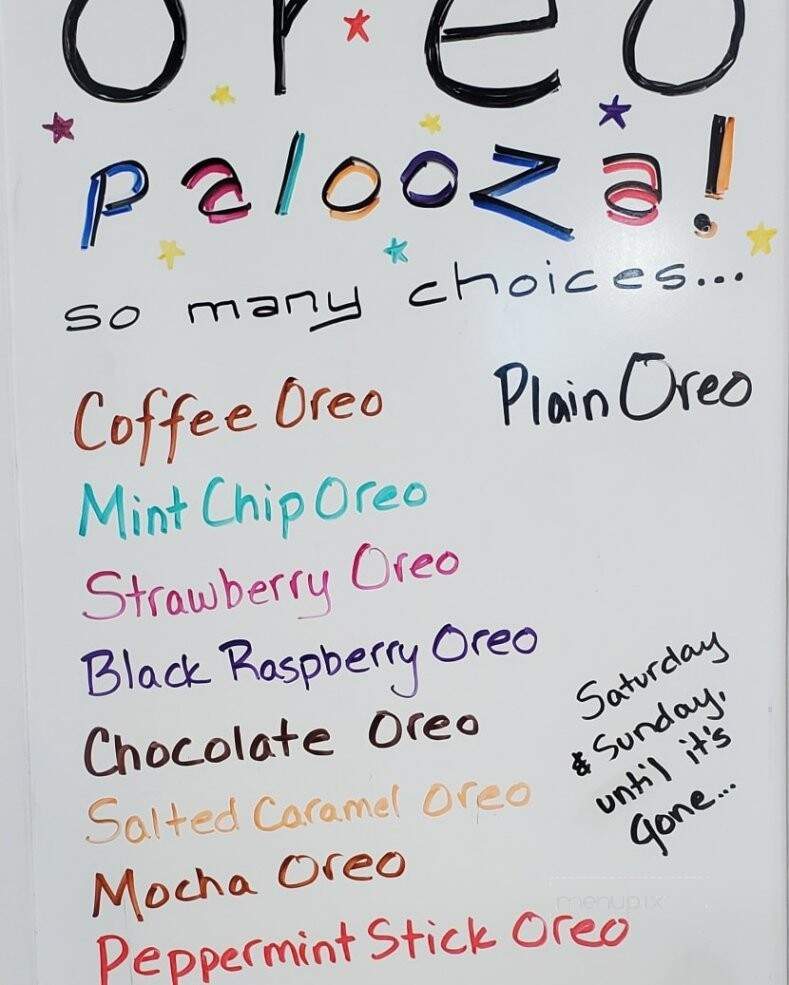 Oreo
palooza!
so many choices...
Coffee Oreo
Plain Oreo
Mint Chip Oreo
Strawberry Oreo
Black Raspberry Oreo
Chocolate Oreo
Salted Caramel Oreo
Mocha Oreo
Peppermint Stick Oreo
Saturday
& Sunday,
until it's
gone...
menupix